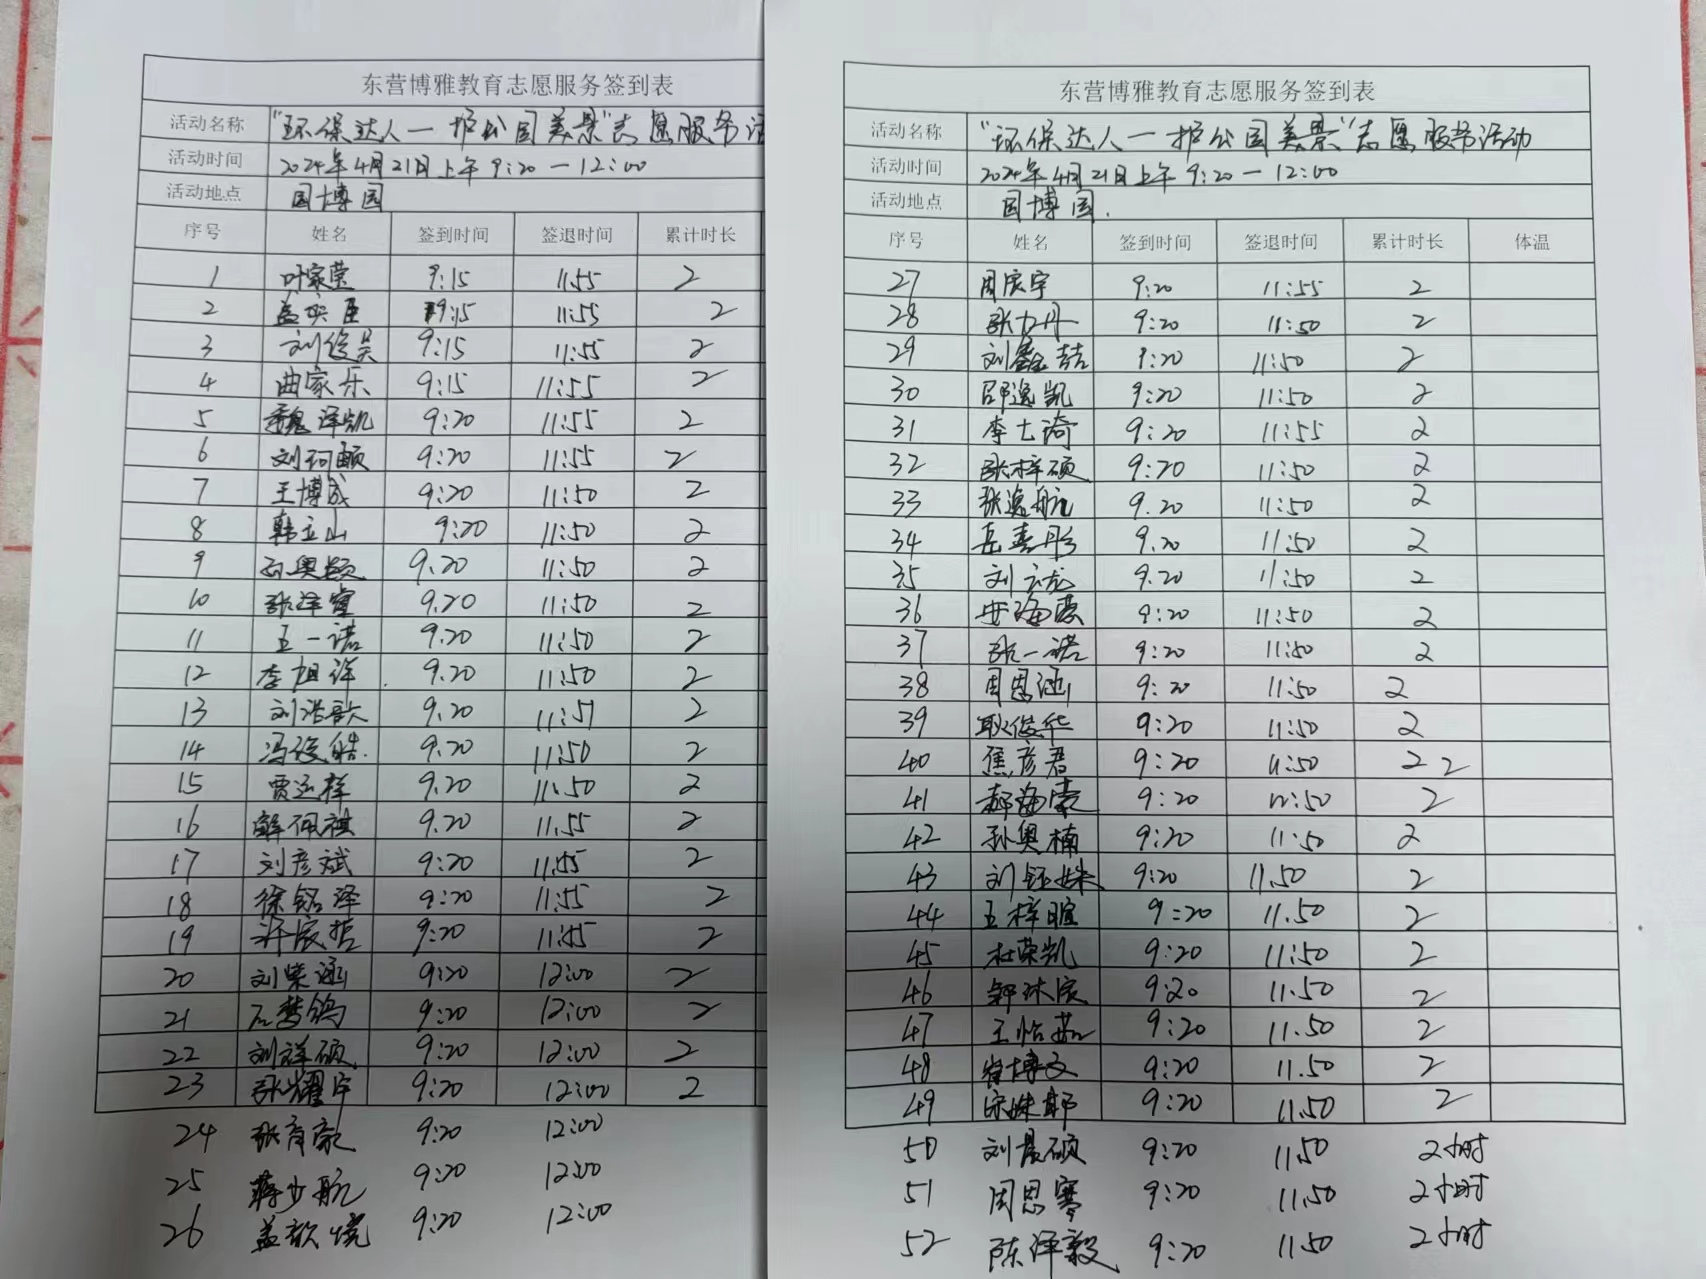 东营博雅教育志愿服务签到表
活动名称 "环保达人一护公园美景"志愿服务活
活动时间 2024年4月21日上午9:20一12:00
活动地点 园博园
序号 姓名 签到时间 签退时间 累计时长
1 叶家莹 9:15 11:55 2
2 9:15 11:55 2
3 刘俊昊 9:15 11:55 2
4 曲家乐 9:15 11:55 2
5 魏泽凯 9:20 11:55 2
6 刘珂颐 9:20 11:55 2
7 王博成 9:20 11:50 2
8 韩立山 9:20 11:50 2
9 9.20 11:50 2
10 9.20 11:50 2
11 王一诺 9.20 11:50 2
12 李旭祥 9.20 11:50 2
13 刘浩歌 9.20 11:51 2
14 冯俊皓. 9.20 11:50 2
15 贾运祥 9.20 11.50 2
16 解佩祺 9.20 11.55 2
17 刘彦斌 9:20 11.55 2
18 徐铭泽 9:20 11:55 2
19 许宸哲 9:20 11:55 2
20 刘紫涵 9:20 12:00 2
21 石梦鸽 9:20 12:00 2
22 刘祥硕 9:20 12:00 2
23 9:20 12:00 2
24 张育豪 9:20 12:00
25 蒋少航 9:20 12:00
26 盖歆烧 9:20 12:00
东营博雅教育志愿服务签到表
活动名称 "环保达人一护公园美景"志愿服务活动
活动时间 2024年4月21日上午9:20一12:00
活动地点 园博园.
序号 姓名 签到时间 签退时间 累计时长 体温
27 周宸宇 9:20 11:55 2
28 张力丹 9:20 11:50 2
29 刘鑫喆 9:20 11:50 2
30 邵逸凯 9:20 11:50 2
31 李士琦 9:20 11:55 2
32 张梓硕 9:20 11:50 2
33 张逸航 9.20 11:50 2
34 岳嘉彤 9.20 11:50 2
35 刘云龙 9.20 11:50 2
36 9:20 11:50 2
37 张一诺 9:20 11:50 2
38 周恩涵 9:20 11:50 2
39 耿俊华 9:20 11:50 2
40 焦彦君 9:20 11:50 2 2
41 9:20 11:50 2
42 孙奥楠 9:20 11:50 2
43 刘钰姝 9:20 11.50 2
44 王梓暄 9:20 11.50 2
45 杜荣凯 9:20 11:50 2
46 9:20 11.50 2
47 王怡茹 9:20 11.50 2
48 崔博文 9:20 11.50 2
49 9:20 11.50 2
50 刘晨硕 9:20 11.50 2小时
51 周思骞 9:20 11.50 2小时
52 陈泽毅 9:20 11.50 2小时